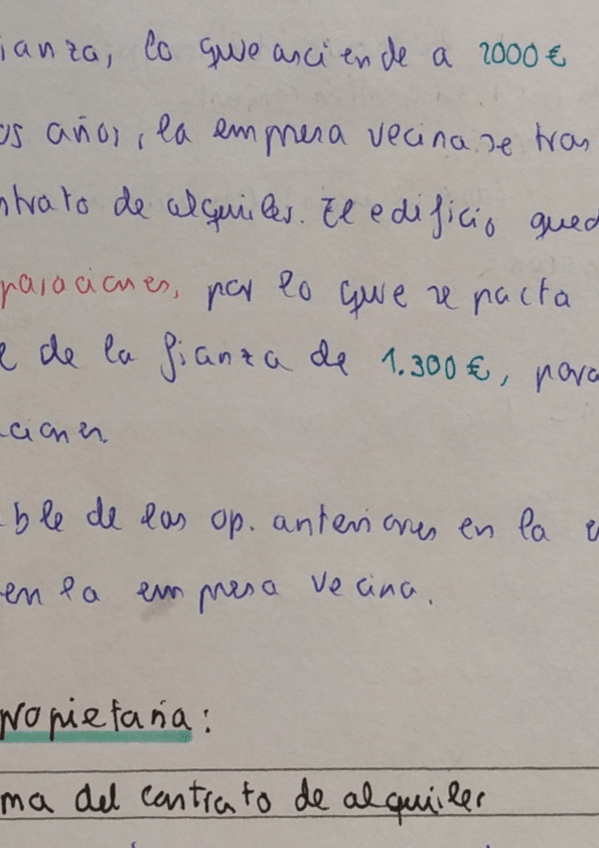 ianza, lo que asciende a 2000 €
os años, la empresa vecina se tras
ntrato de alquiler. El edificio qued
paraciones, por lo que se pacta
e de la fianza de 1.300 €, para
aciones.
ble de las op. anteriores en la e
en la empresa vecina.
propietaria:
ma del contrato de alquiler